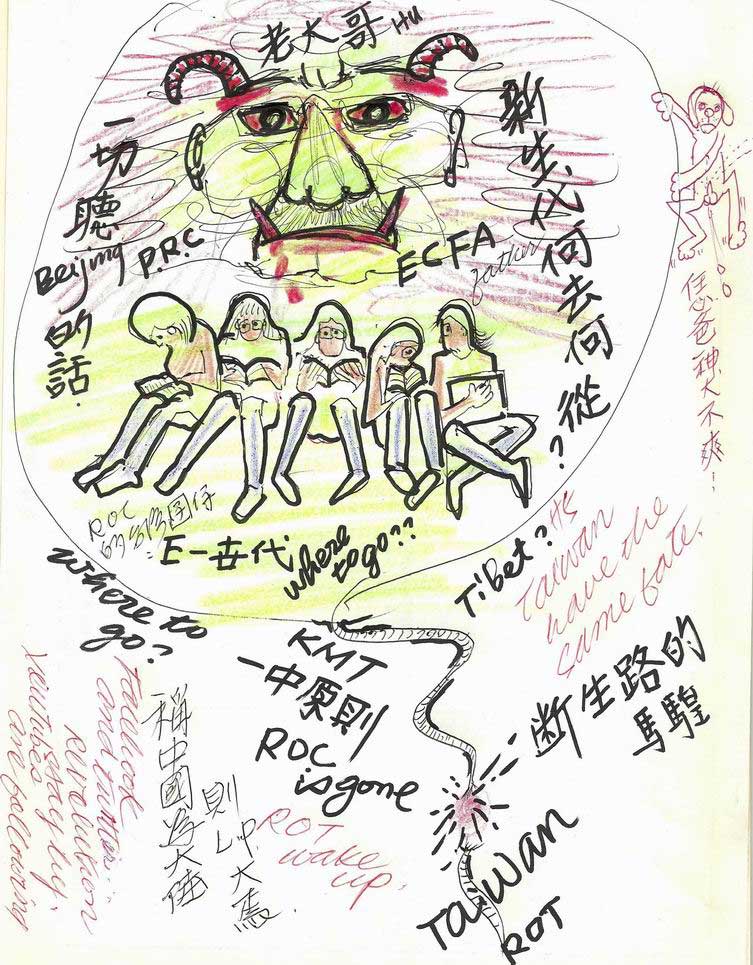 老大哥 HU
一切聽
Beijing
的話.
P.R.C
ECFA
father
新生代何去何從?
不爽
ROC
E一世代
where
to go??
where to
go?
Tibet?
Taiwan
have the
same fate.
KMT
一中原則
ROC
is gone
断生路的
馬騜
稱中國為大陸
ROT
wake
up.
revolution
are following
Taiwan
ROT